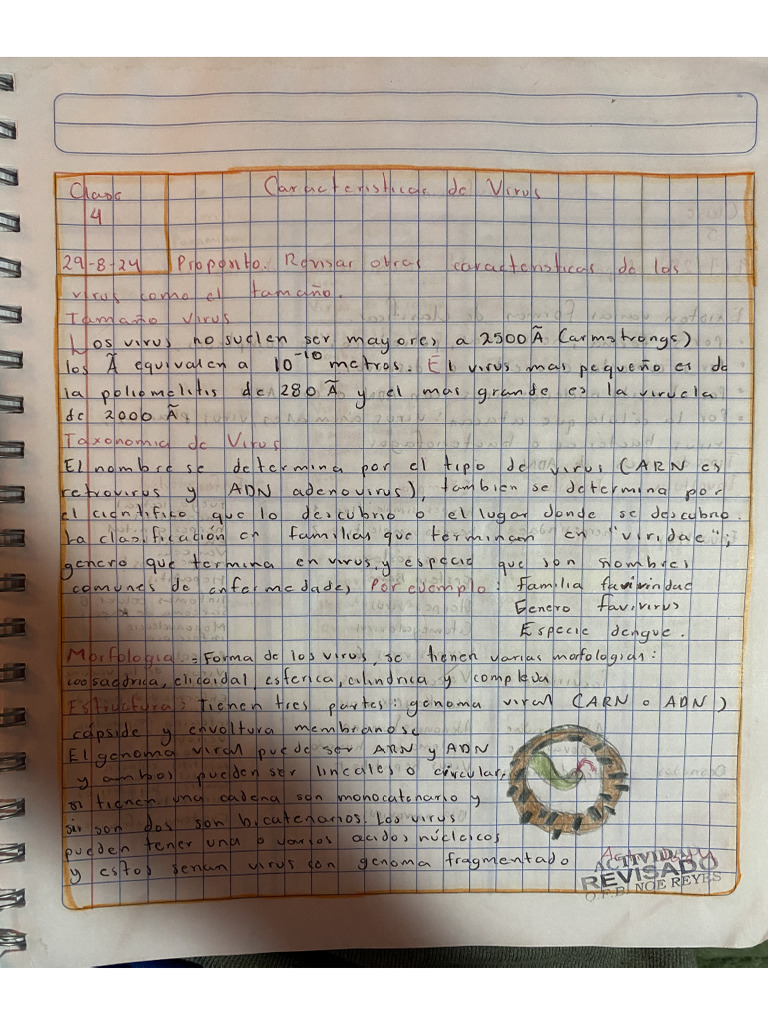 Clase
4
Caracteristicas de Virus
29-8-24
Proposito. Revisar otras caracteristicas de los
virus como el tamaño.
Tamaño Virus
Los virus no suelen ser mayores a 2500 Ã (armstrongs)
los Ã equivalen a 10⁻¹⁰ metros. El virus mas pequeño es de
la poliomelitis de 280 Ã y el mas grande es la viruela
de 2000 Ã.
Taxonomia de Virus
El nombre se determina por el tipo de virus (ARN es
retrovirus y ADN adenovirus), tambien se determina por
el cientifico que lo descubrio o el lugar donde se descubrio.
La clasificación en familias que terminan en "viridae";
genero que termina en virus, y especie que son nombres
comunes de enfermedades Por ejemplo: Familia favirindae
Genero favivirus
Especie dengue.
Morfologia = Forma de los virus, se tienen varias morfologias:
icosaedrica, elicoidal, esferica, cilindrica y compleja
Estructura: Tienen tres partes: genoma viral (ARN o ADN)
cápside y envoltura membranosa
El genoma viral puede ser ARN y ADN
y ambos pueden ser lineales o circulares
si tienen una cadena son monocatenario y
si son dos son bicatenarios. Los virus
pueden tener una o varios acidos núcleicos
y estos serian virus con genoma fragmentado
ACTIVIDAD
REVISADO
Q.F.B. NOE REYES